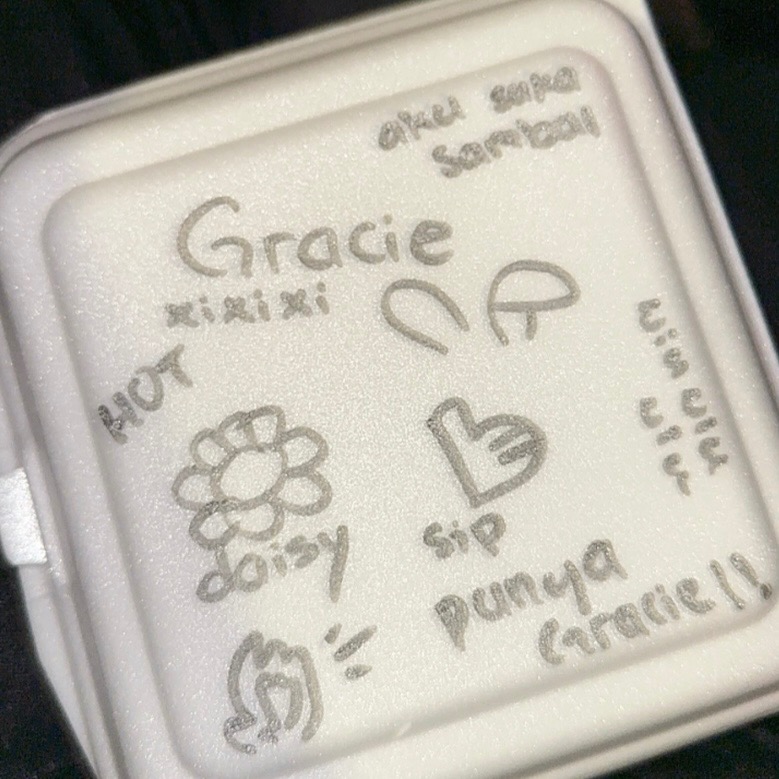 aku suka
sambal
Gracie
xixixixi
HOT
wiu wiu
wiu
daisy
sip
punya
Gracie!!